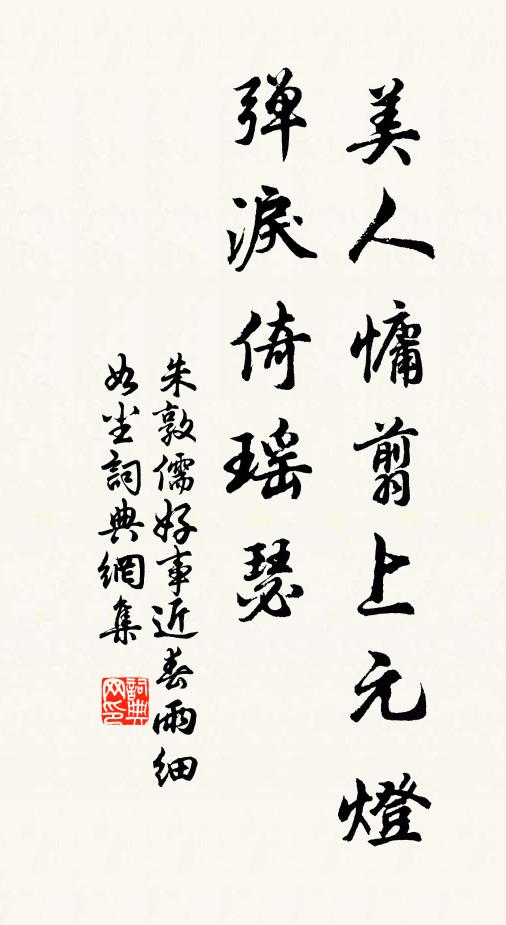 美人慵翦上元燈
弹淚倚瑶瑟
朱敦儒好事近春雨細
如尘詞典網集
詞典网印